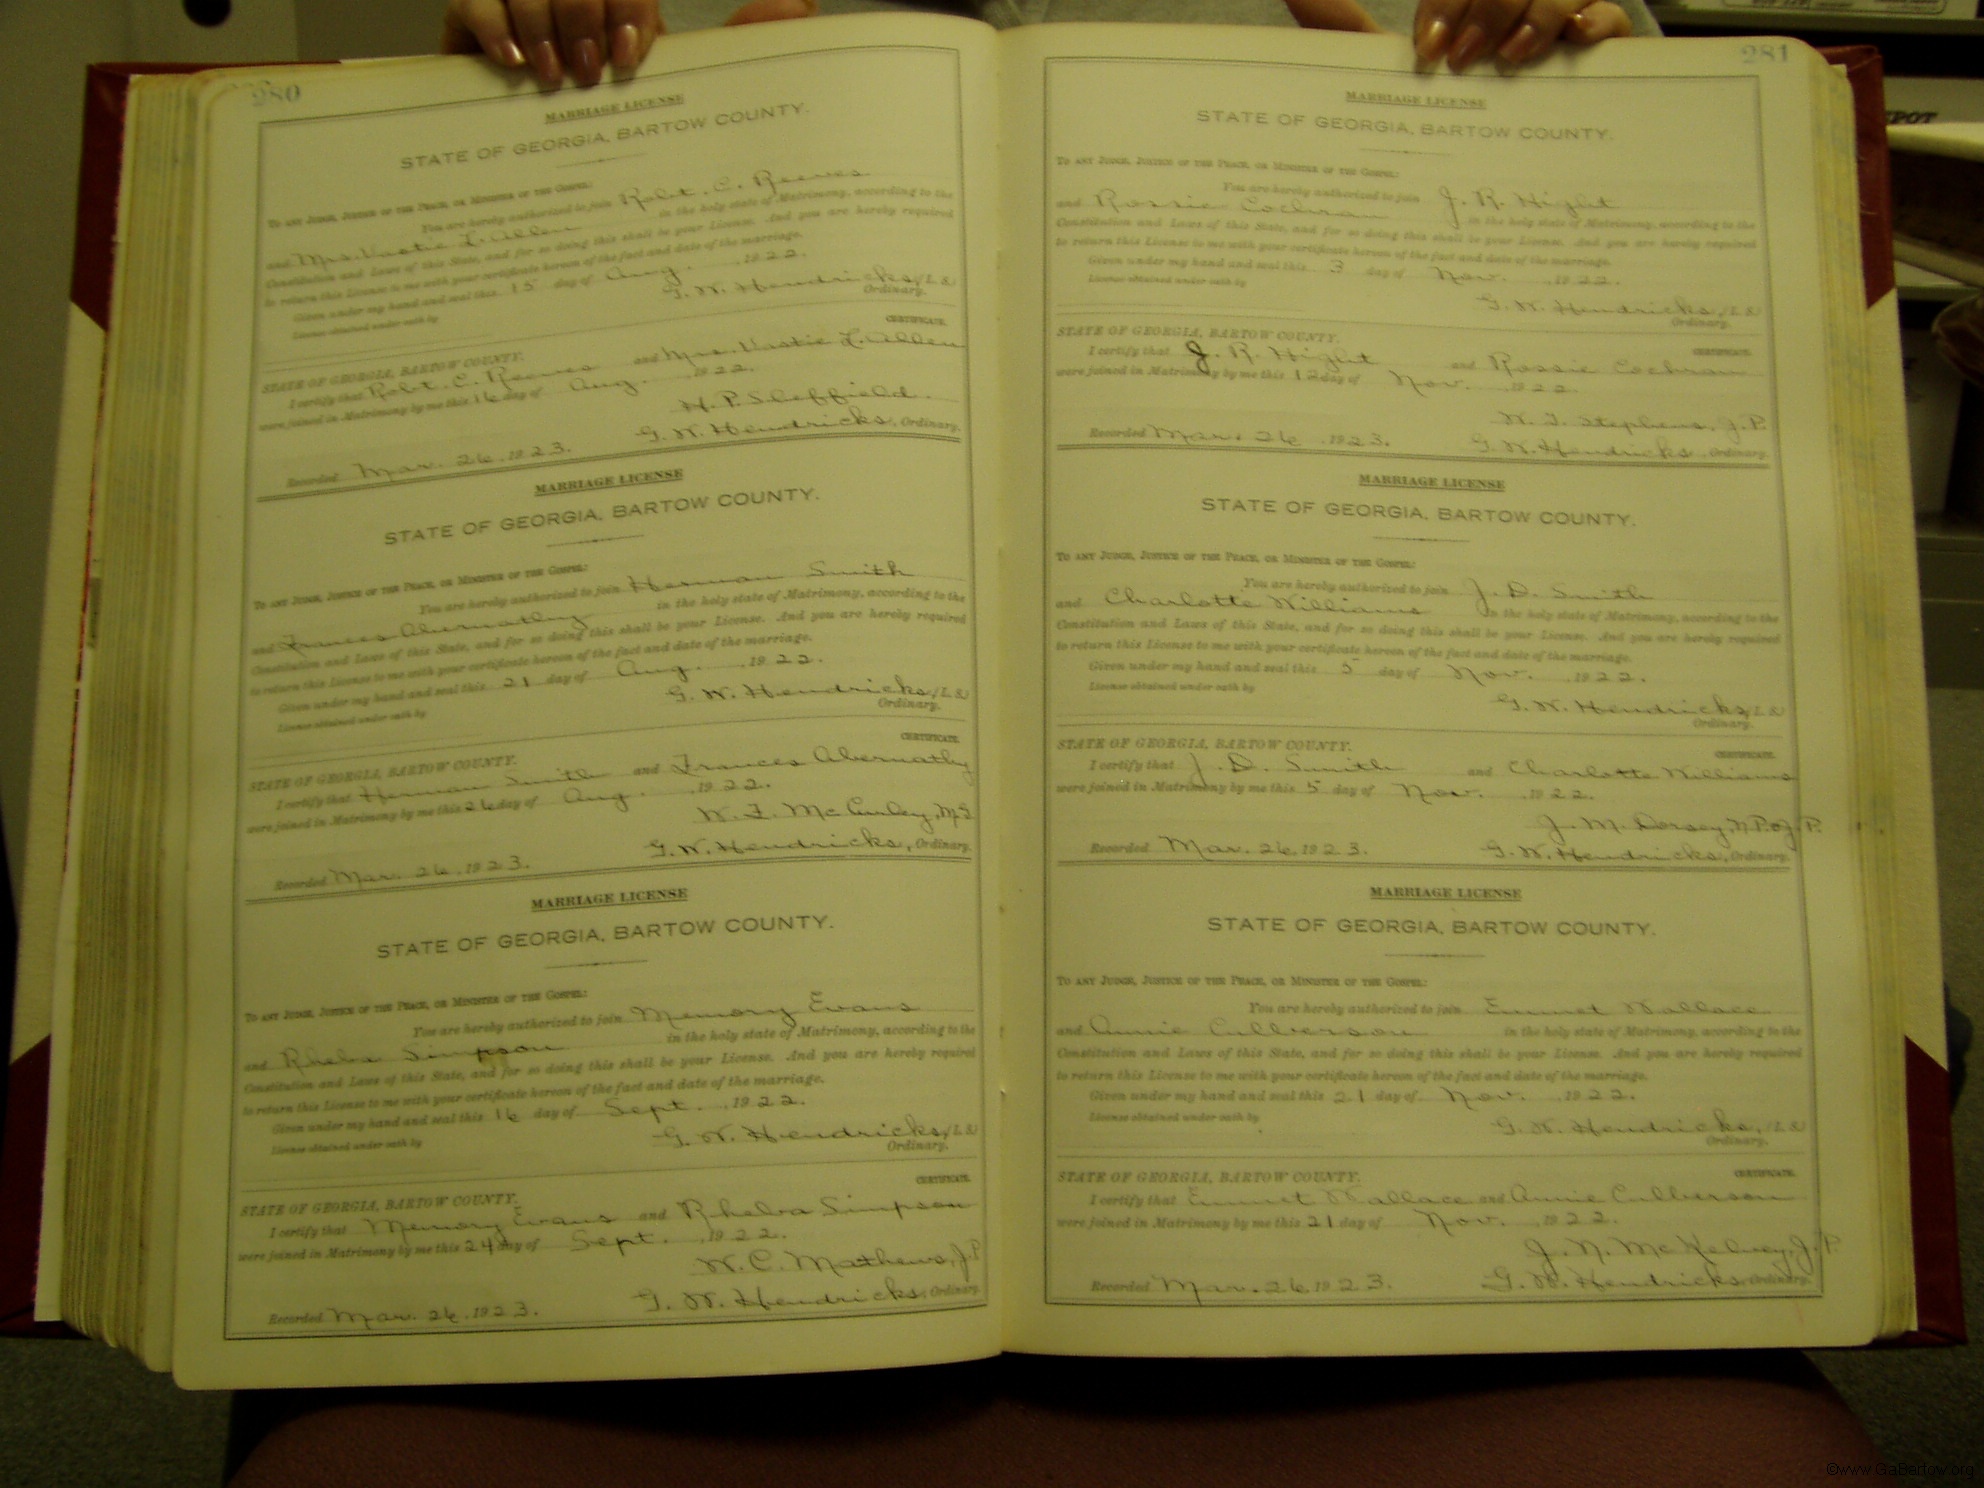 280
MARRIAGE LICENSE
STATE OF GEORGIA, BARTOW COUNTY.
TO ANY JUDGE, JUSTICE OF THE PEACE, OR MINISTER OF THE GOSPEL:
You are hereby authorized to join Robt. C. Reeves
and Mrs. Vastie L. Allen in the holy state of Matrimony, according to the
Constitution and Laws of this State, and for so doing this shall be your License. And you are hereby required
to return this License to me with your certificate hereon of the fact and date of the marriage.
Given under my hand and seal this 15 day of Aug. , 1922.
License obtained under oath by
G. W. Hendricks, (L. S.)
Ordinary.
CERTIFICATE.
STATE OF GEORGIA, BARTOW COUNTY.
I certify that Robt. C. Reeves and Mrs. Vastie L. Allen
were joined in Matrimony by me this 16 day of Aug. , 1922.
H. P. Sheffield.
Recorded Mar. 26, 1923. G. W. Hendricks, Ordinary.
MARRIAGE LICENSE
STATE OF GEORGIA, BARTOW COUNTY.
TO ANY JUDGE, JUSTICE OF THE PEACE, OR MINISTER OF THE GOSPEL:
You are hereby authorized to join Herman Smith
and Frances Abernathy in the holy state of Matrimony, according to the
Constitution and Laws of this State, and for so doing this shall be your License. And you are hereby required
to return this License to me with your certificate hereon of the fact and date of the marriage.
Given under my hand and seal this 21 day of Aug. , 1922.
License obtained under oath by
G. W. Hendricks, (L. S.)
Ordinary.
CERTIFICATE.
STATE OF GEORGIA, BARTOW COUNTY.
I certify that Herman Smith and Frances Abernathy
were joined in Matrimony by me this 26 day of Aug. , 1922.
W. F. McCurley, M.G.
Recorded Mar. 26, 1923. G. W. Hendricks, Ordinary.
MARRIAGE LICENSE
STATE OF GEORGIA, BARTOW COUNTY.
TO ANY JUDGE, JUSTICE OF THE PEACE, OR MINISTER OF THE GOSPEL:
You are hereby authorized to join Memory Evans
and Rheba Simpson in the holy state of Matrimony, according to the
Constitution and Laws of this State, and for so doing this shall be your License. And you are hereby required
to return this License to me with your certificate hereon of the fact and date of the marriage.
Given under my hand and seal this 16 day of Sept. , 1922.
License obtained under oath by
G. W. Hendricks, (L. S.)
Ordinary.
CERTIFICATE.
STATE OF GEORGIA, BARTOW COUNTY.
I certify that Memory Evans and Rheba Simpson
were joined in Matrimony by me this 24 day of Sept. , 1922.
W. C. Mathews, J.P.
Recorded Mar. 26, 1923. G. W. Hendricks, Ordinary.
281
MARRIAGE LICENSE
STATE OF GEORGIA, BARTOW COUNTY.
TO ANY JUDGE, JUSTICE OF THE PEACE, OR MINISTER OF THE GOSPEL:
You are hereby authorized to join J. R. Hight
and Rossie Cochran in the holy state of Matrimony, according to the
Constitution and Laws of this State, and for so doing this shall be your License. And you are hereby required
to return this License to me with your certificate hereon of the fact and date of the marriage.
Given under my hand and seal this 3 day of Nov. , 1922.
License obtained under oath by
G. W. Hendricks, (L. S.)
Ordinary.
STATE OF GEORGIA, BARTOW COUNTY.
CERTIFICATE.
I certify that J. R. Hight and Rossie Cochran
were joined in Matrimony by me this 12 day of Nov. , 1922
W. T. Stephens, J.P.
Recorded Mar. 26, 1923. G. W. Hendricks, Ordinary.
MARRIAGE LICENSE
STATE OF GEORGIA, BARTOW COUNTY.
TO ANY JUDGE, JUSTICE OF THE PEACE, OR MINISTER OF THE GOSPEL:
You are hereby authorized to join J. D. Smith
and Charlotte Williams in the holy state of Matrimony, according to the
Constitution and Laws of this State, and for so doing this shall be your License. And you are hereby required
to return this License to me with your certificate hereon of the fact and date of the marriage.
Given under my hand and seal this 5 day of Nov. , 1922.
License obtained under oath by
G. W. Hendricks, (L. S.)
Ordinary.
STATE OF GEORGIA, BARTOW COUNTY.
CERTIFICATE.
I certify that J. D. Smith and Charlotte Williams
were joined in Matrimony by me this 5 day of Nov. , 1922.
J. M. Dorsey, N.P. & J.P.
Recorded Mar. 26, 1923. G. W. Hendricks, Ordinary.
MARRIAGE LICENSE
STATE OF GEORGIA, BARTOW COUNTY.
TO ANY JUDGE, JUSTICE OF THE PEACE, OR MINISTER OF THE GOSPEL:
You are hereby authorized to join Emmet Wallace
and Annie Culberson in the holy state of Matrimony, according to the
Constitution and Laws of this State, and for so doing this shall be your License. And you are hereby required
to return this License to me with your certificate hereon of the fact and date of the marriage.
Given under my hand and seal this 21 day of Nov. , 1922.
License obtained under oath by
G. W. Hendricks, (L. S.)
Ordinary.
STATE OF GEORGIA, BARTOW COUNTY.
CERTIFICATE.
I certify that Emmet Wallace and Annie Culberson
were joined in Matrimony by me this 21 day of Nov. , 1922.
J. N. McKelvey, J.P.
Recorded Mar. 26, 1923. G. W. Hendricks, Ordinary.
©www.GaBartow.org